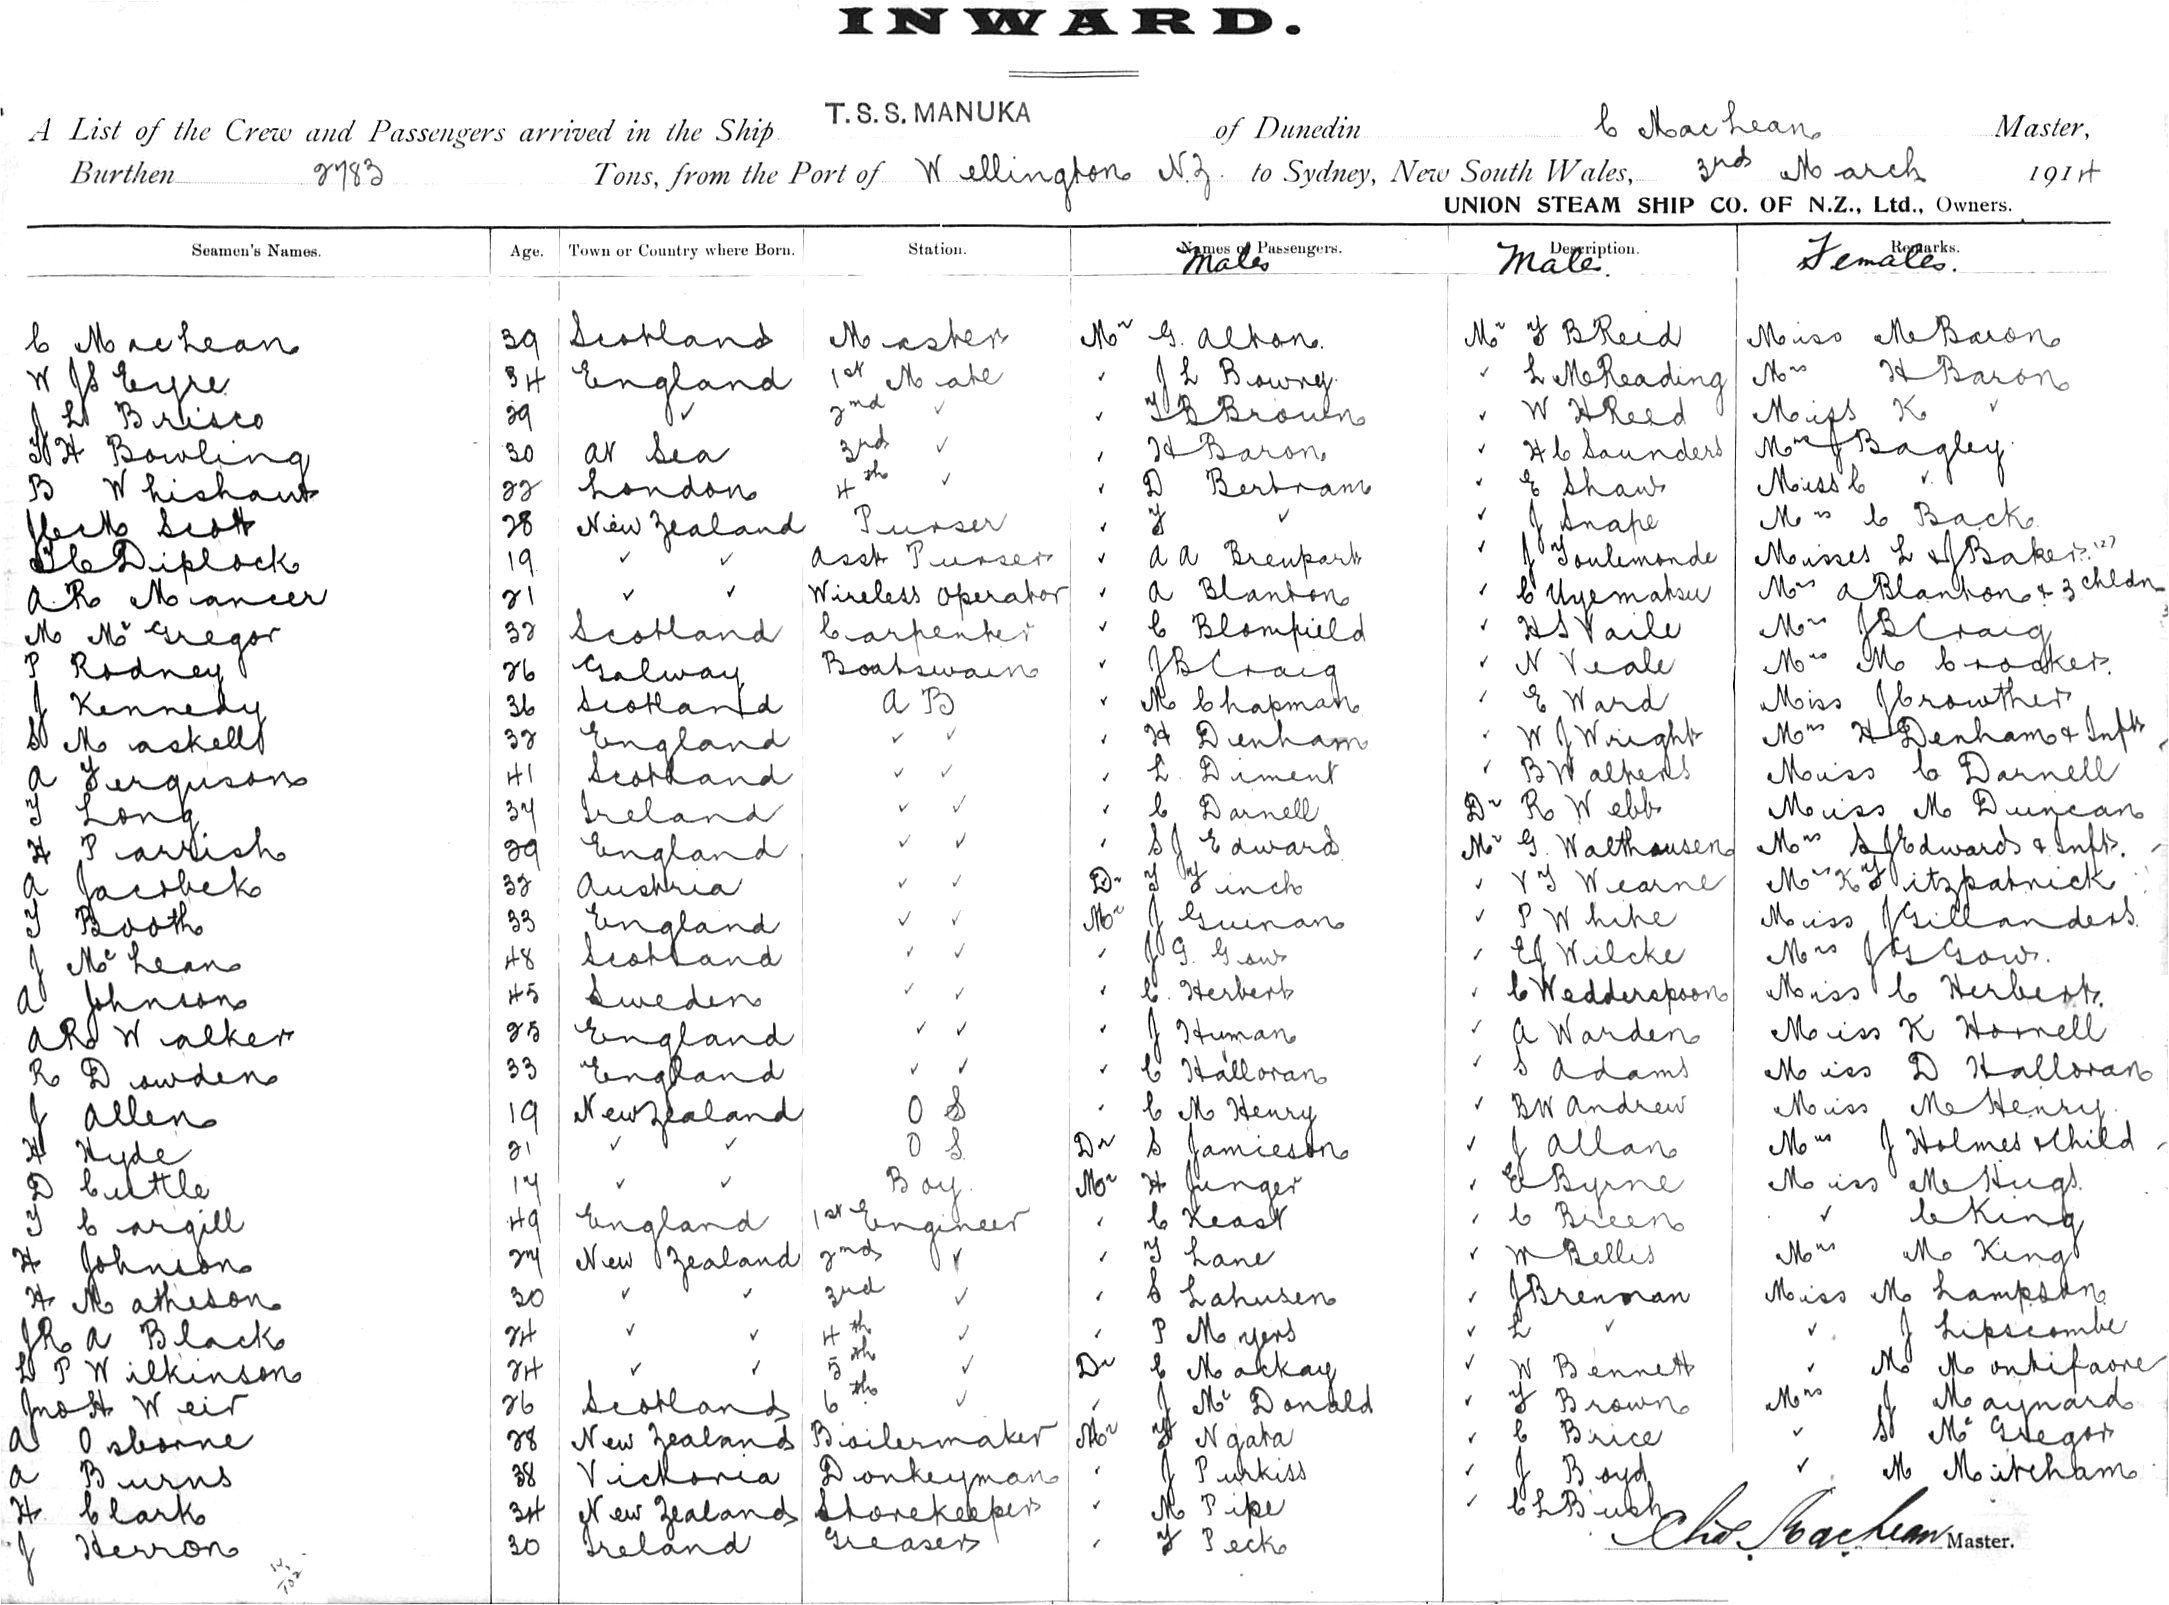 INWARD.
A List of the Crew and Passengers arrived in the Ship T.S.S. MANUKA of Dunedin C MacLean Master,
Burthen 2783 Tons, from the Port of Wellington N.Z. to Sydney, New South Wales, 3rd March 1914
UNION STEAM SHIP CO. OF N.Z., Ltd., Owners.
Seamen's Names. Age. Town or Country where Born. Station. Names of Passengers. Description. Remarks.
Males Male. Females.
C MacLean 39 Scotland Master Mr G. Alton. Mr F B Reid Miss M Baron
W JS Eyre 34 England 1st Mate ✓ J L Bowry ✓ L M Reading Mrs H Baron
J L Brisco 29 ✓ 2nd ✓ ✓ T B Brown ✓ W H Reed Miss K ✓
H Bowling 30 At Sea 3rd ✓ ✓ H Baron ✓ H C Saunders Mrs J Bagley
B Whishaw 22 London 4th ✓ ✓ D Bertram ✓ E Shaw Miss C ✓
Scott 28 New Zealand Purser ✓ F ✓ ✓ J Snape Mrs C Back
Diplock 19 ✓ ✓ Asst Purser ✓ A A Breupart ✓ J Toulemonde Misses L & J Baker (2)
A.R. Mancer 21 ✓ ✓ Wireless Operator ✓ A Blanton ✓ C Uyematsu Mrs A Blanton & 3 Chldn
M McGregor 32 Scotland Carpenter ✓ C Blomfield ✓ H S Vaile Mrs J B Craig
P Rodney 26 Galway Boatswain ✓ J B Craig ✓ N Veale Mrs M Crocker.
J Kennedy 36 Scotland A B ✓ M Chapman ✓ E Ward Miss J Crowther
S Maskell 32 England ✓ ✓ ✓ H Denham ✓ W J Wright Mrs H Denham & Inft
A Ferguson 41 Scotland ✓ ✓ ✓ L. Diment ✓ B Walters Miss C Darnell
T Long 37 Ireland ✓ ✓ ✓ C Darnell Dr R Webb Miss M Duncan
H Parrish 29 England ✓ ✓ ✓ S J Edward Mr G. Walthausen Mrs S J Edwards & Inft.
A Jacobek 32 Austria ✓ ✓ Dr F Finch ✓ V T Wearne Mrs K Fitzpatrick
T Booth 33 England ✓ ✓ Mr J Guinan ✓ P White Miss J Gillanders
J McLean 48 Scotland ✓ ✓ ✓ J G. Gow ✓ E J Wilcke Mrs J G Gow.
A Johnson 45 Sweden ✓ ✓ ✓ C. Herbert ✓ C Wedderspoon Miss C Herbert.
A R Walker 25 England ✓ ✓ ✓ J Human ✓ A Warden Miss K Hornell
R Dowden 33 England ✓ ✓ ✓ C Halloran ✓ S Adams Miss D Halloran
J Allen 19 New Zealand O S ✓ C M Henry ✓ B W Andrew Miss M Henry.
H Hyde 21 ✓ ✓ O S Dr S Jamieson ✓ J Allan Mrs J Holmes & Child
D Cuttle 17 ✓ ✓ Boy. Mr H Junger ✓ E Byrne Miss M Hugs
T Cargill 49 England 1st Engineer ✓ C Keast ✓ C Breen ✓ C King
H Johnson 27 New Zealand 2nd ✓ ✓ T Lane ✓ W Bellis Mrs M King
H Matheson 30 ✓ ✓ 3rd ✓ ✓ S Lahusen ✓ J Brennan Miss M Lampson
J R A Black 24 ✓ ✓ 4th ✓ ✓ P Myers ✓ L ✓ ✓ J Lipscombe
L P Wilkinson 24 ✓ ✓ 5th ✓ Dr C Mackay ✓ W Bennett ✓ M Montifaore
Jno H Weir 26 Scotland 6th ✓ ✓ J McDonald ✓ F Brown Mrs J Maynard
A Osborne 28 New Zealand Boilermaker Mr Ngata ✓ C Brice ✓ S McGregor
A Burns 38 Victoria Donkeyman ✓ J Purkiss ✓ J Boyd ✓ M Mitcham
H Clark 34 New Zealand Storekeeper ✓ M Pipe ✓ C L Bush
J Herron 30 Ireland Greaser ✓ F Peck Chas. MacLean Master.